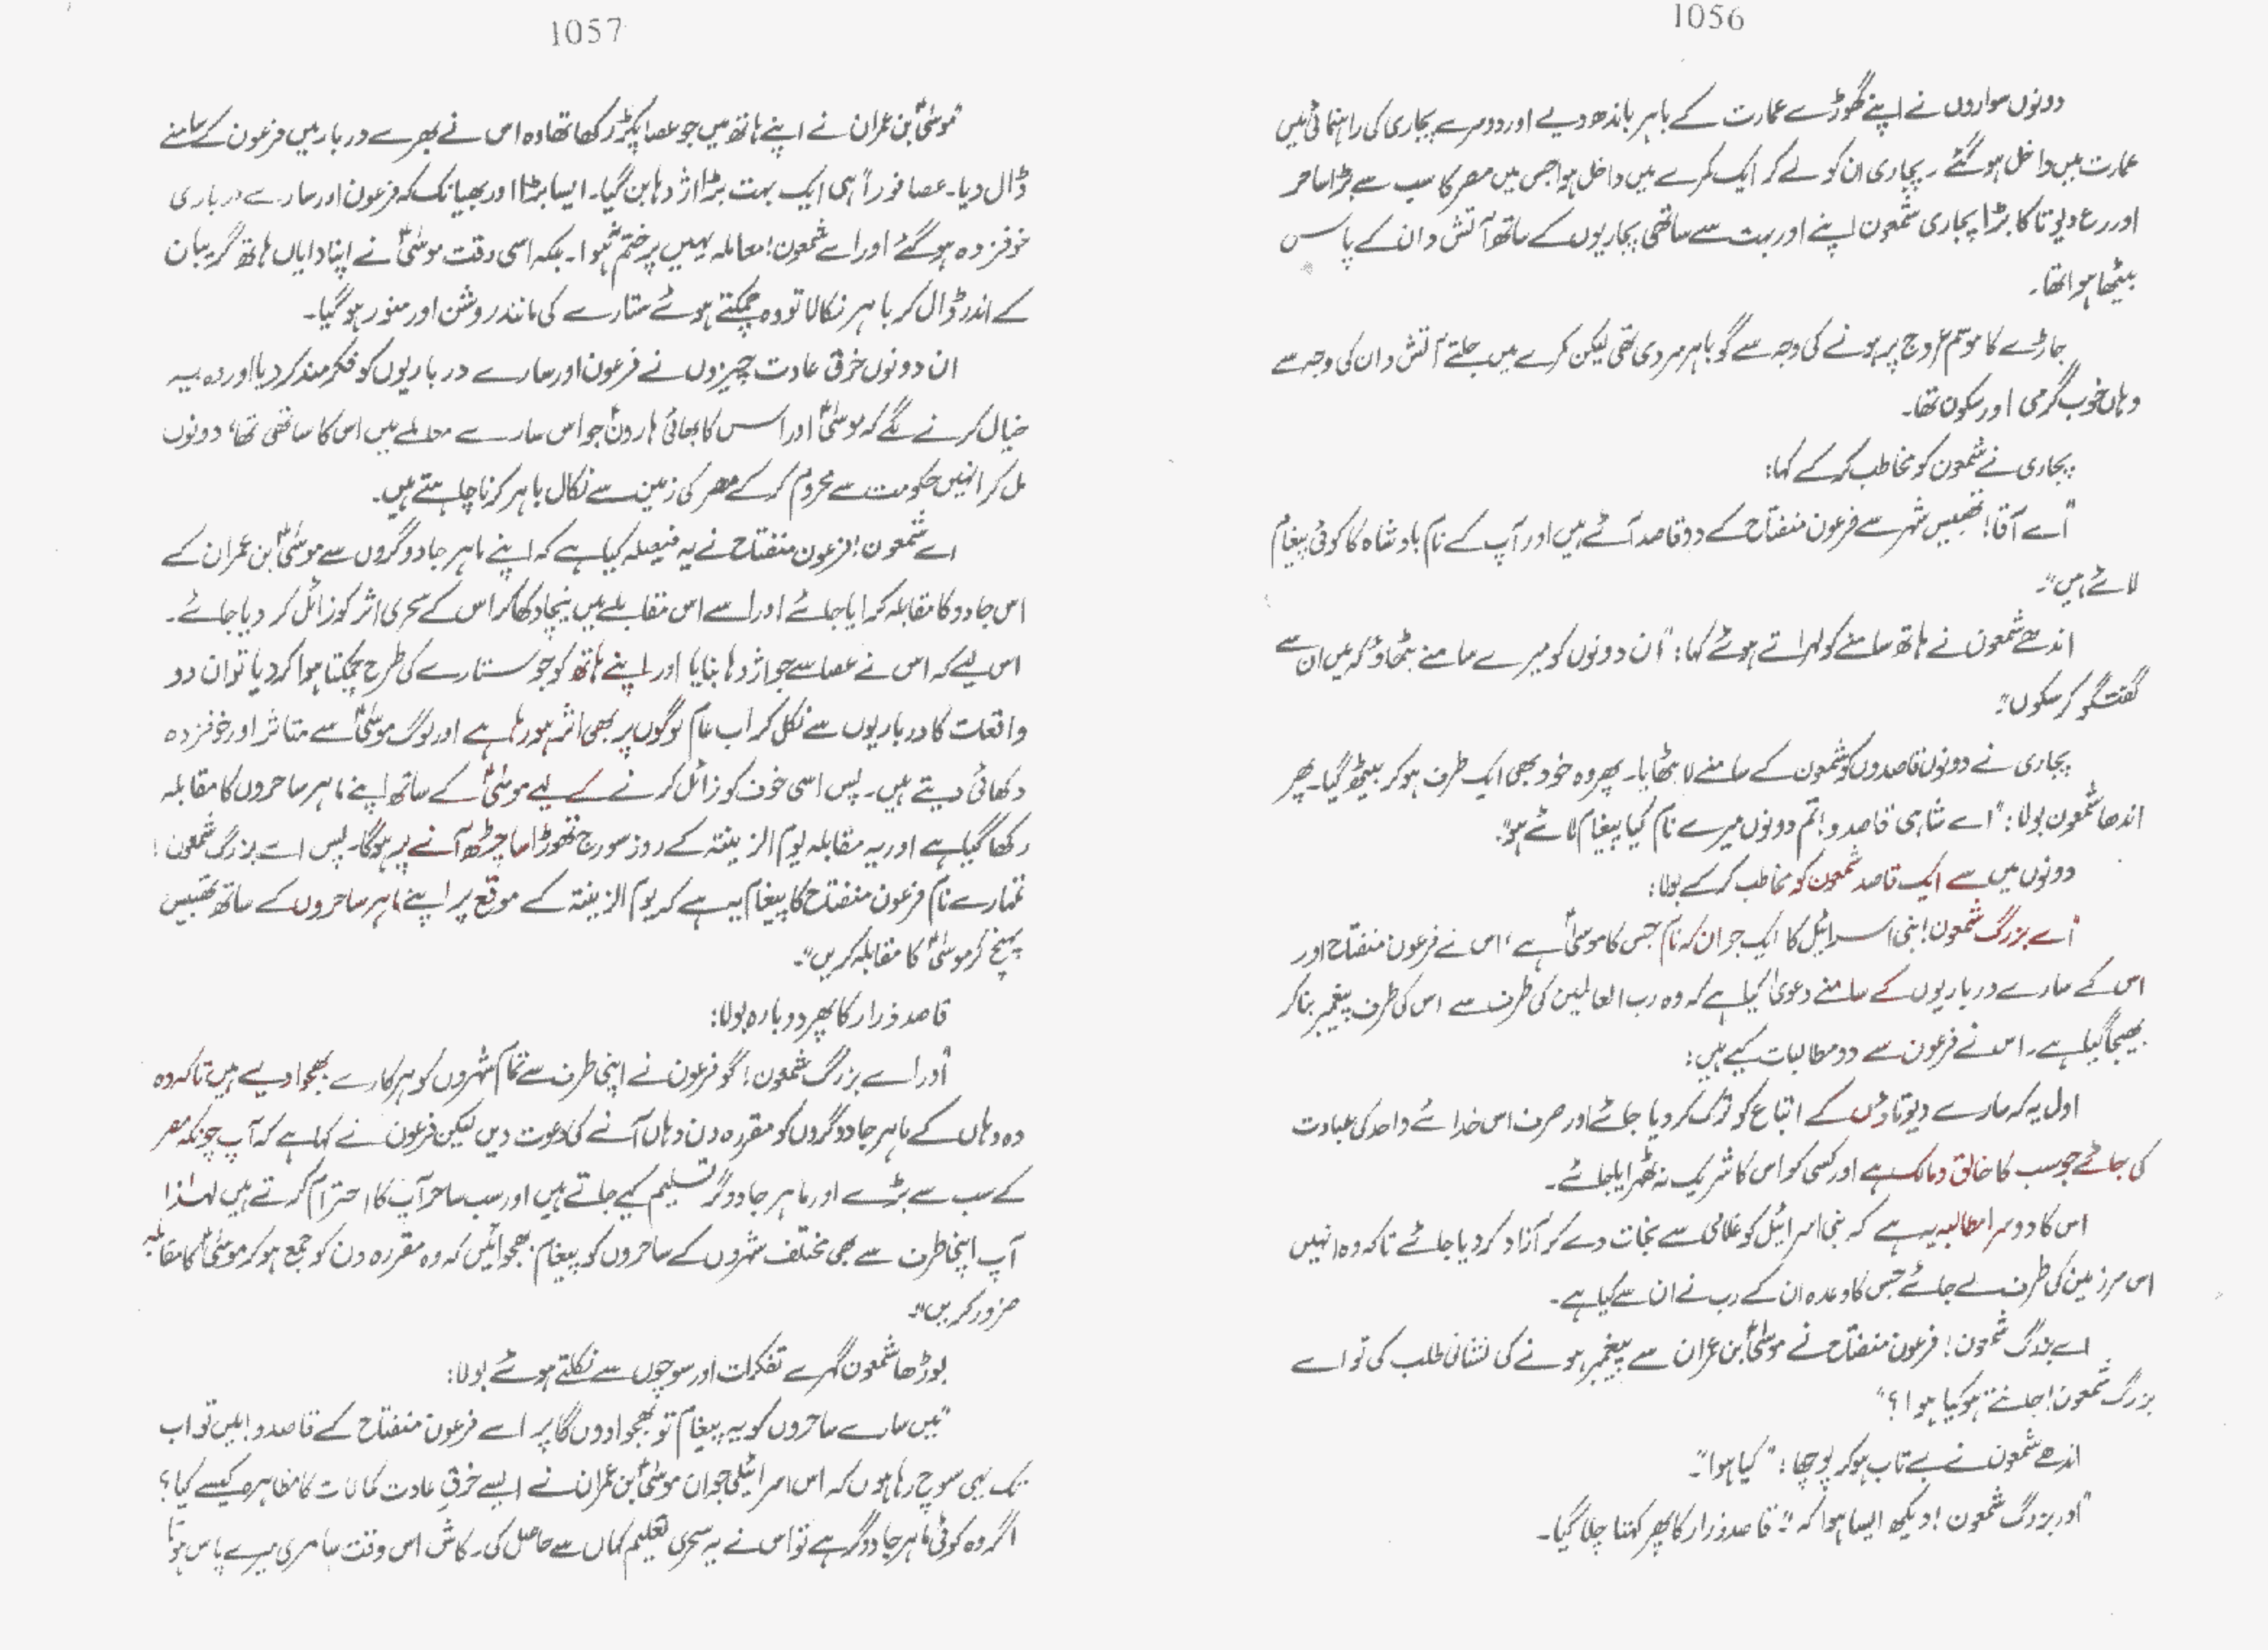 1056
دونوں سواروں نے اپنے گھوڑے عمارت کے باہر باندھ دیے اور دوسرے پجاری کی راہنمائی میں
عمارت میں داخل ہو گئے۔ پجاری ان کو لے کر ایک کمرے میں داخل ہوا جس میں مصر کا سب سے بڑا ساحر
اور رع دیوتا کا بڑا پجاری شمعون اپنے اور بہت سے ساتھی پجاریوں کے ساتھ آتش دان کے پاس
بیٹھا ہوا تھا۔
جاڑے کا موسم عروج پر ہونے کی وجہ سے گو باہر سردی تھی لیکن کمرے میں جلتے آتش دان کی وجہ سے
وہاں خوب گرمی اور سکون تھا۔
پجاری نے شمعون کو مخاطب کر کے کہا:
"اے آقا! تھیبس شہر سے فرعون منفتاح کے دو قاصد آئے ہیں اور آپ کے نام بادشاہ کا کوئی پیغام
لائے ہیں"۔
اندھے شمعون نے ہاتھ سامنے کو لہراتے ہوئے کہا: "ان دونوں کو میرے سامنے بٹھاؤ کہ میں ان سے
گفتگو کر سکوں"۔
پجاری نے دونوں قاصدوں کو شمعون کے سامنے لا بٹھایا۔ پھر وہ خود بھی ایک طرف ہو کر بیٹھ گیا۔ پھر
اندھا شمعون بولا: "اے شاہی قاصدو! تم دونوں میرے نام کیا پیغام لائے ہو"۔
دونوں میں سے ایک قاصد شمعون کو مخاطب کر کے بولا:
"اے بزرگ شمعون! بنی اسرائیل کا ایک جوان کہ نام جس کا موسیٰؑ ہے، اس نے فرعون منفتاح اور
اس کے سارے درباریوں کے سامنے دعویٰ کیا ہے کہ وہ رب العالمین کی طرف سے اس کی طرف پیغمبر بنا کر
بھیجا گیا ہے۔ اس نے فرعون سے دو مطالبات کیے ہیں:
اول یہ کہ سارے دیوتاؤں کے اتباع کو ترک کر دیا جائے اور صرف اس خدائے واحد کی عبادت
کی جائے جو سب کا خالق و مالک ہے اور کسی کو اس کا شریک نہ ٹھہرایا جائے۔
اس کا دوسرا مطالبہ یہ ہے کہ بنی اسرائیل کو غلامی سے نجات دے کر آزاد کر دیا جائے تاکہ وہ انہیں
اس سرزمین کی طرف لے جائے جس کا وعدہ ان کے رب نے ان سے کیا ہے۔
اے بزرگ شمعون! فرعون منفتاح نے موسیٰؑ بن عمران سے پیغمبر ہونے کی نشانی طلب کی تو اے
بزرگ شمعون! جانتے ہو کیا ہوا؟"
اندھے شمعون نے بے تاب ہو کر پوچھا: "کیا ہوا"۔
"اور بزرگ شمعون! دیکھ ایسا ہوا کہ"۔ قاصد ذرا رکا پھر کہتا چلا گیا۔
1057
"موسیٰؑ بن عمران نے اپنے ہاتھ میں جو عصا پکڑ رکھا تھا وہ اس نے بھرے دربار میں فرعون کے سامنے
ڈال دیا۔ عصا فوراً ہی ایک بہت بڑا اژدہا بن گیا۔ ایسا بڑا اور بھیانک کہ فرعون اور سارے درباری
خوفزدہ ہو گئے اور اے شمعون! معاملہ یہیں پر ختم نہ ہوا۔ بلکہ اسی وقت موسیٰؑ نے اپنا دایاں ہاتھ گریبان
کے اندر ڈال کر باہر نکالا تو وہ چمکتے ہوئے ستارے کی مانند روشن اور منور ہو گیا۔
ان دونوں خرق عادت چیزوں نے فرعون اور سارے درباریوں کو فکرمند کر دیا اور وہ یہ
خیال کرنے لگے کہ موسیٰؑ اور اس کا بھائی ہارونؑ جو اس سارے معاملے میں اس کا ساتھی تھا، دونوں
مل کر انہیں حکومت سے محروم کر کے مصر کی زمین سے نکال باہر کرنا چاہتے ہیں۔
اے شمعون! فرعون منفتاح نے یہ فیصلہ کیا ہے کہ اپنے ماہر جادوگروں سے موسیٰؑ بن عمران کے
اس جادو کا مقابلہ کرایا جائے اور اسے اس مقابلے میں نیچا دکھا کر اس کے سحری اثر کو زائل کر دیا جائے۔
اس لیے کہ اس نے عصا سے جو اژدہا بنایا اور اپنے ہاتھ کو جو ستارے کی طرح چمکتا ہوا کر دیا تو ان دو
واقعات کا درباریوں سے نکل کر اب عام لوگوں پر بھی اثر ہو رہا ہے اور لوگ موسیٰؑ سے متاثر اور خوفزدہ
دکھائی دیتے ہیں۔ پس اسی خوف کو زائل کرنے کے لیے موسیٰؑ کے ساتھ اپنے ماہر ساحروں کا مقابلہ
رکھا گیا ہے اور یہ مقابلہ یوم الزینتہ کے روز سورج تھوڑا سا چڑھ آنے پر ہو گا۔ پس اے بزرگ شمعون!
تمہارے نام فرعون منفتاح کا پیغام یہ ہے کہ یوم الزینتہ کے موقع پر اپنے ماہر ساحروں کے ساتھ تھیبس
پہنچ کر موسیٰؑ کا مقابلہ کریں"۔
قاصد ذرا رکا پھر دوبارہ بولا:
"اور اے بزرگ شمعون! گو فرعون نے اپنی طرف سے تمام شہروں کو ہرکارے بھجوا دیے ہیں تاکہ وہ
وہ وہاں کے ماہر جادوگروں کو مقررہ دن وہاں آنے کی دعوت دیں لیکن فرعون نے کہا ہے کہ آپ چونکہ مصر
کے سب سے بڑے اور ماہر جادوگر تسلیم کیے جاتے ہیں اور سب ساحر آپ کا احترام کرتے ہیں لہٰذا
آپ اپنی طرف سے بھی مختلف شہروں کے ساحروں کو پیغام بھجوائیں کہ وہ مقررہ دن کو جمع ہو کر موسیٰؑ کا مقابلہ
ضرور کریں"۔
بوڑھا شمعون گہرے تفکرات اور سوچوں سے نکلتے ہوئے بولا:
"میں سارے ساحروں کو یہ پیغام تو بھجوا دوں گا پر اے فرعون منفتاح کے قاصدو! میں تو اب
تک یہی سوچ رہا ہوں کہ اس اسرائیلی جوان موسیٰؑ بن عمران نے ایسے خرق عادت کمالات کا مظاہرہ کیسے کیا؟
اگر وہ کوئی ماہر جادوگر ہے تو اس نے یہ سحری تعلیم کہاں سے حاصل کی۔ کاش اس وقت سامری میرے پاس ہوتا